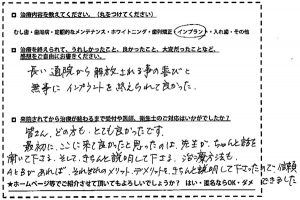 ■ 治療内容を教えてください。(丸をつけてください)
むし歯・歯周病・定期的なメンテナンス・ホワイトニング・歯列矯正・インプラント・入れ歯・その他
■ 治療を終えられて、うれしかったこと、良かったこと、大変だったことなど、
感想をご自由にお書きください。
長い通院から解放される事の喜びと
無事にインプラントを終えられて良かった。
■ 来院されてから治療が終わるまで受付や医師、衛生士のご対応はいかがでしたか?
皆さん、どの方も、とても良かったです。
最初に、ここに来て良かったと思ったのは、先生が、ちゃんと話を
聞いて下さる、そして、きちんと説明して下さる、治療方法も、
AとBがあれば、それぞれのメリット、デメリットを、きちんと説明して下さったので、信頼
できました
★ホームページ等でご紹介させて頂いてもよろしいでしょうか? はい・匿名ならOK・ダメ